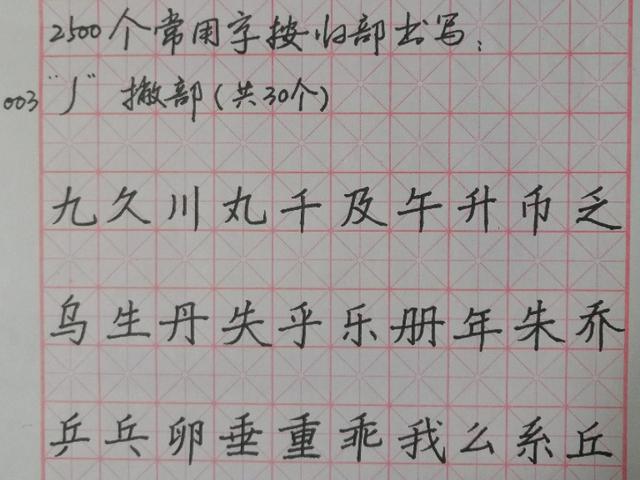 2500个常用字按归部书写：
003 "丿" 撇部（共30个）
九久川丸千及午升币乏
乌生丹失乎乐册年朱乔
乒乓卵垂重乖我么系丘